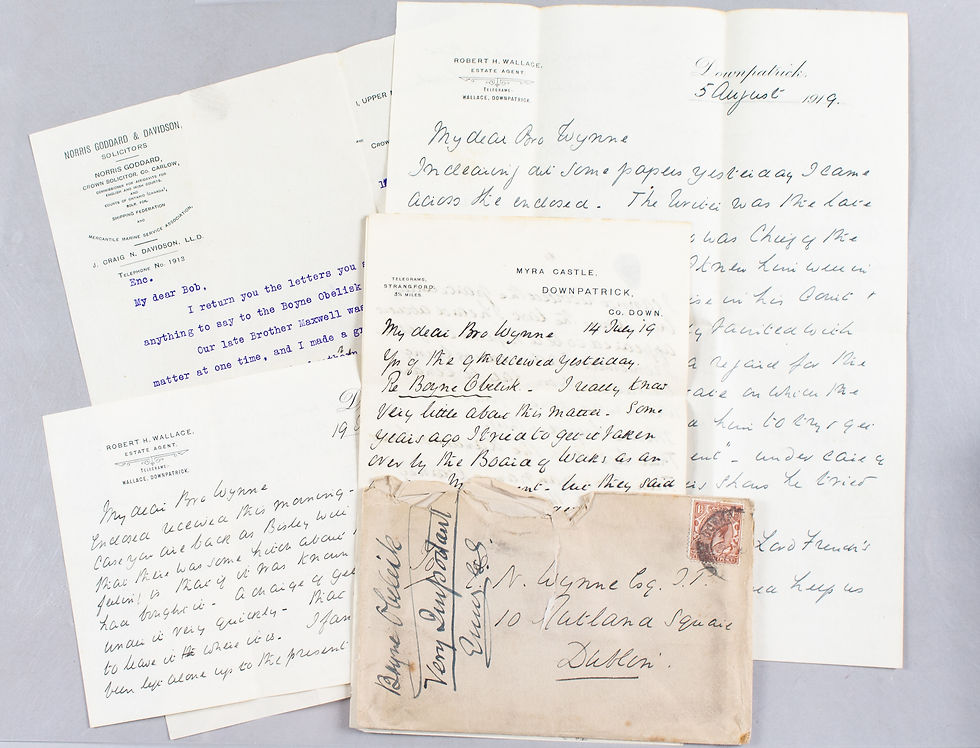 NORRIS GODDARD & DAVIDSON,
SOLICITORS
NORRIS GODDARD,
CROWN SOLICITOR, CO. CARLOW,
COMMISSIONER FOR AFFIDAVITS FOR
ENGLISH AND IRISH COURTS,
AND
COURTS OF ONTARIO (CANADA),
ALSO, FOR
SHIPPING FEDERATION
AND
MERCANTILE MARINE SERVICE ASSOCIATION.
J. CRAIG N. DAVIDSON, LL.D.
TELEPHONE NO. 1913
Enc.
My dear Bob,
I return you the letters you
anything to say to the Boyne Obelisk
Our late Brother Maxwell was
matter at one time, and I made a
UPPER
CROW
ROBERT H. WALLACE,
ESTATE AGENT.
TELEGRAMS:
WALLACE, DOWNPATRICK.
Downpatrick,
5 August 1919.
My dear Bro Wynne
In clearing out some papers yesterday I came
across the enclosed. The writer was the late
was Chief of the
knew him well in
in his Court
with
a regard for the
on which the
him to try & get
ent" - under care of
shows he tried
Lord French's
keep us
MYRA CASTLE,
DOWNPATRICK,
CO. DOWN.
TELEGRAMS,
STRANGFORD.
3½ MILES
My dear Bro Wynne 14 July 19
Yrs of the 9th received yesterday.
Re Boyne Obelisk - I really know
very little about this matter. Some
years ago I tried to get it taken
over by the Board of Works as an
ent - but they said
ROBERT H. WALLACE,
ESTATE AGENT.
TELEGRAMS:
WALLACE, DOWNPATRICK.
19
My dear Bro Wynne
Enclosed received this morning -
case you are back as Bisley will
that there was some hitch about
feeling is that if it was known
had bought it - A change of
under it very quickly - that
to leave it where it is. I
been left alone up to the present
Boyne Obelisk
Very Important
N. Wynne Esq. J.P.
10 Rutland Square
Dublin.